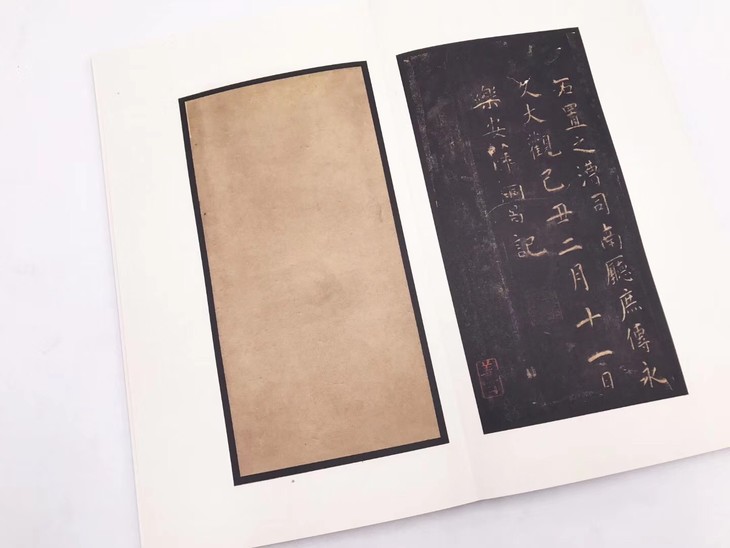 石置之漕司南廳庶傳永
久大觀己丑二月十一日
樂安記